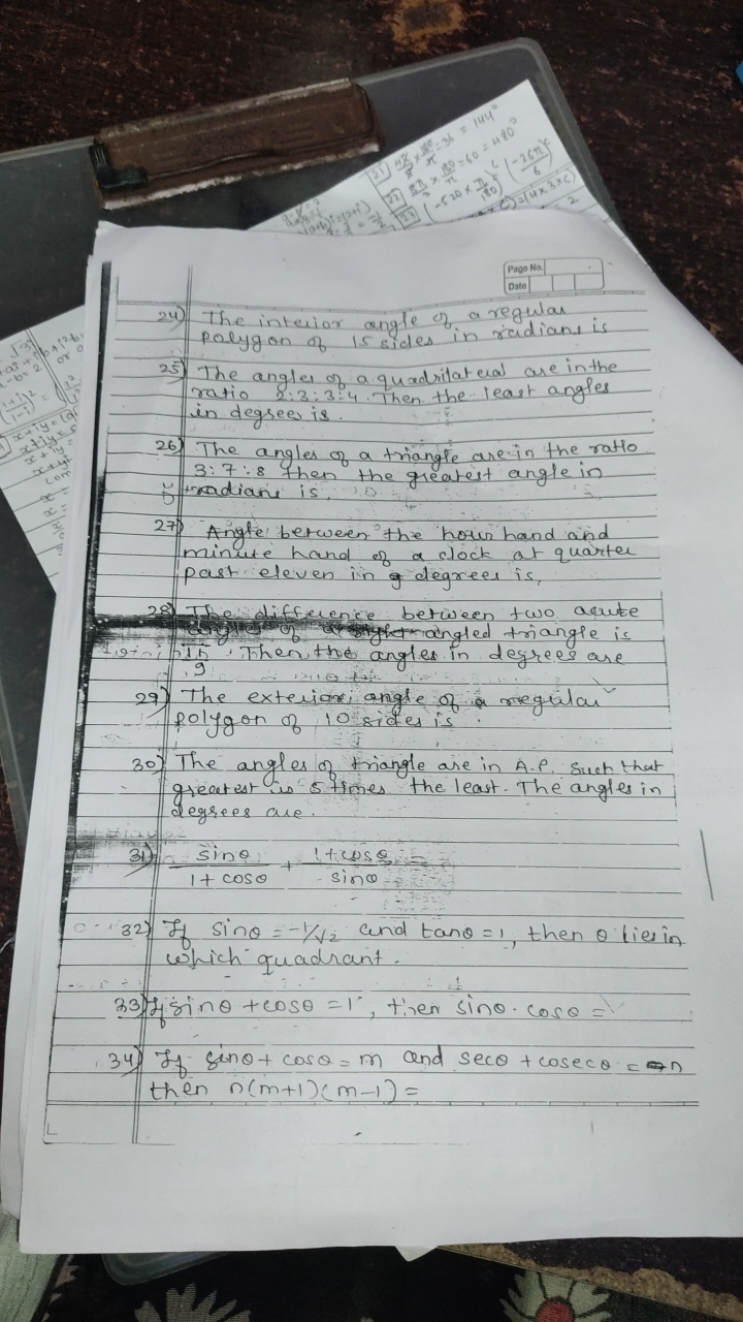 21) 4π/5 × 180/π = 36 = 144°
= 60 = 480°
(-520 × π/180)ᶜ (-26π/6)ᶜ
Page No.
Date
24) The interior angle of a regular
polygon of 15 sides in radians is
25) The angles of a quadrilateral are in the
ratio 2:3:3:4. Then the least angles
in degrees is.
26) The angles of a triangle are in the ratio
3:7:8 then the greatest angle in
radians is,
27) Angle between the hour hand and
minute hand of a clock at quarter
past eleven in degrees is,
28) The difference between two acute
angles of a right angled triangle is
π/9. Then the angles in degrees are
29) The exterior angle of a regular
polygon of 10 sides is.
30) The angles of triangle are in A.P. such that
greatest is 5 times the least. The angles in
degrees are.
31) sinθ/1+cosθ + 1+cosθ/sinθ =
32) If sinθ = -1/√2 and tanθ = 1, then θ lies in
which quadrant.
33) If sinθ + cosθ = 1, then sinθ · cosθ =
34) If sinθ + cosθ = m and secθ + cosecθ = n
then n(m+1)(m-1) =